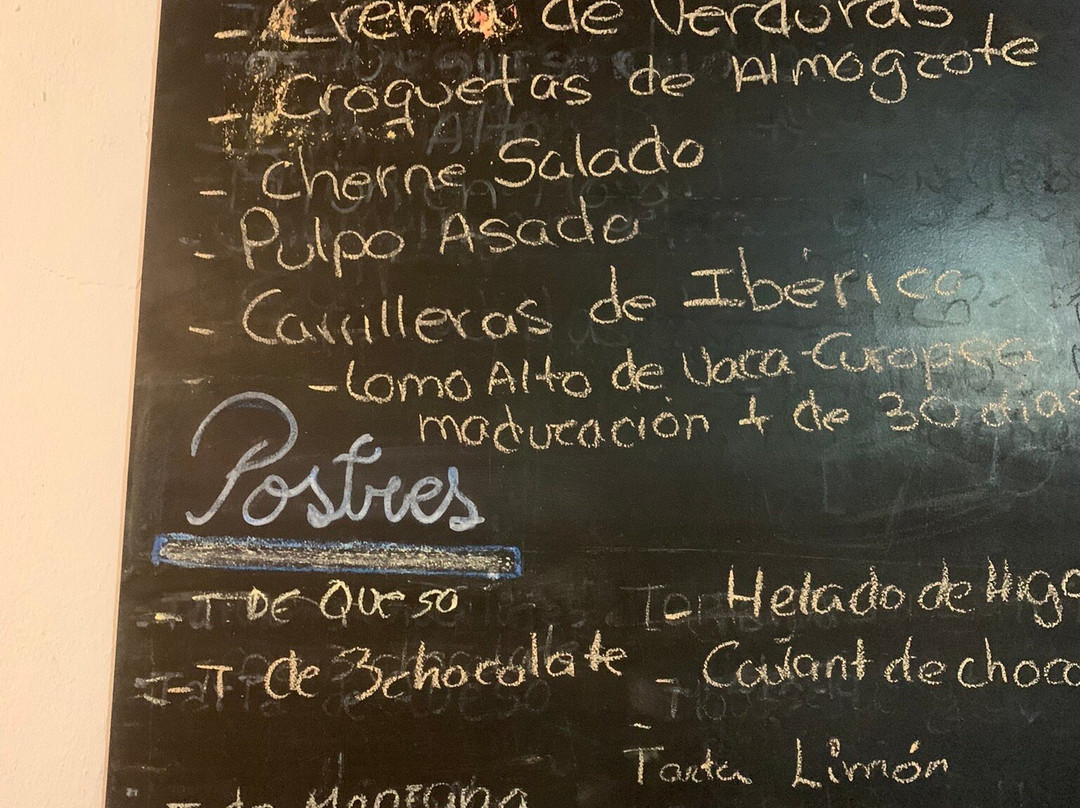 - Crema de Verduras
- Croquetas de Almogrote
- Cherne Salado
- Pulpo Asado
- Carrilleras de Ibérico
- Lomo Alto de Vaca Europea
maduración + de 30 días
Postres
- T DE QUESO
- T de 3 chocolate
- T de Manzana
Helado de Higo
- Coulant de choco
- Tarta Limón